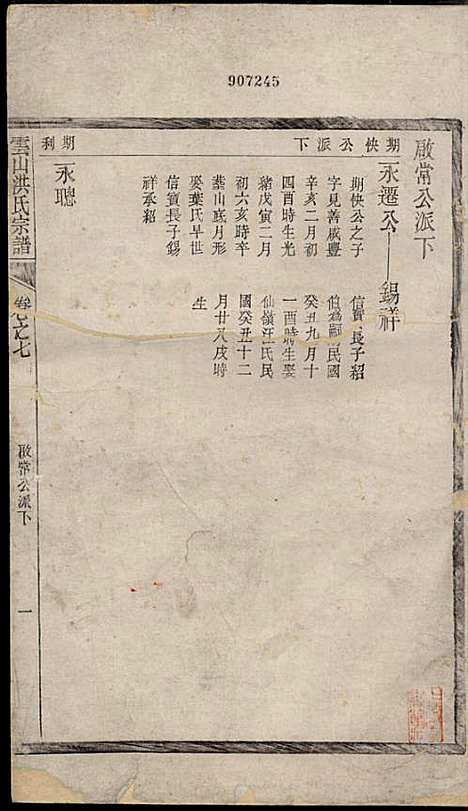 907245
啟常公派下
期快公派下
永遷公——錫祥
期快公之子
字見善咸豐
辛亥二月初
四酉時生光
緒戊寅二月
初六亥時卒
蘸山底月形
娶葉氏早世
信賓長子錫
祥承紹
信賓長子紹
伯為嗣民國
癸丑九月十
一酉時生娶
仙嶺汪氏民
國癸丑十二
月廿八戌時
生
期利
永聰
雲山洪氏宗譜
卷之七
啟常公派下
一